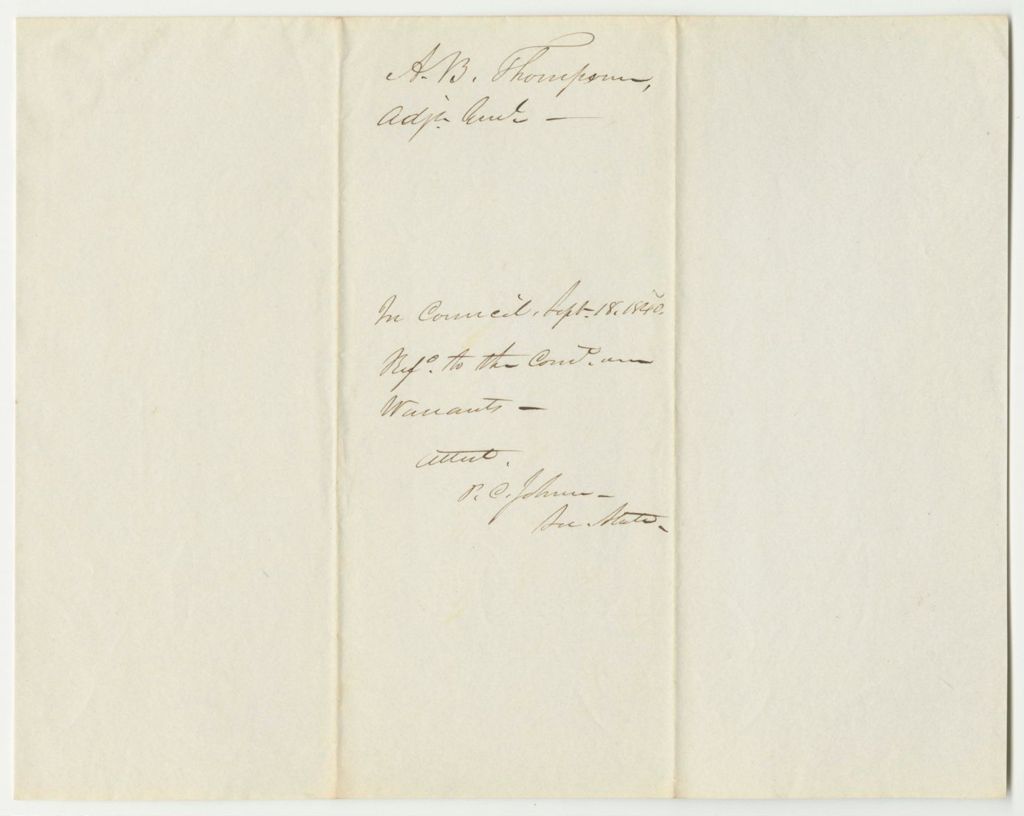 A. B. Thompson,
Adjt. Genl. —
In Council, Sept. 18. 1840.
Refd. to the Come. on
Warrants —
Attest.
P. C. Johnson —
Sec. State —